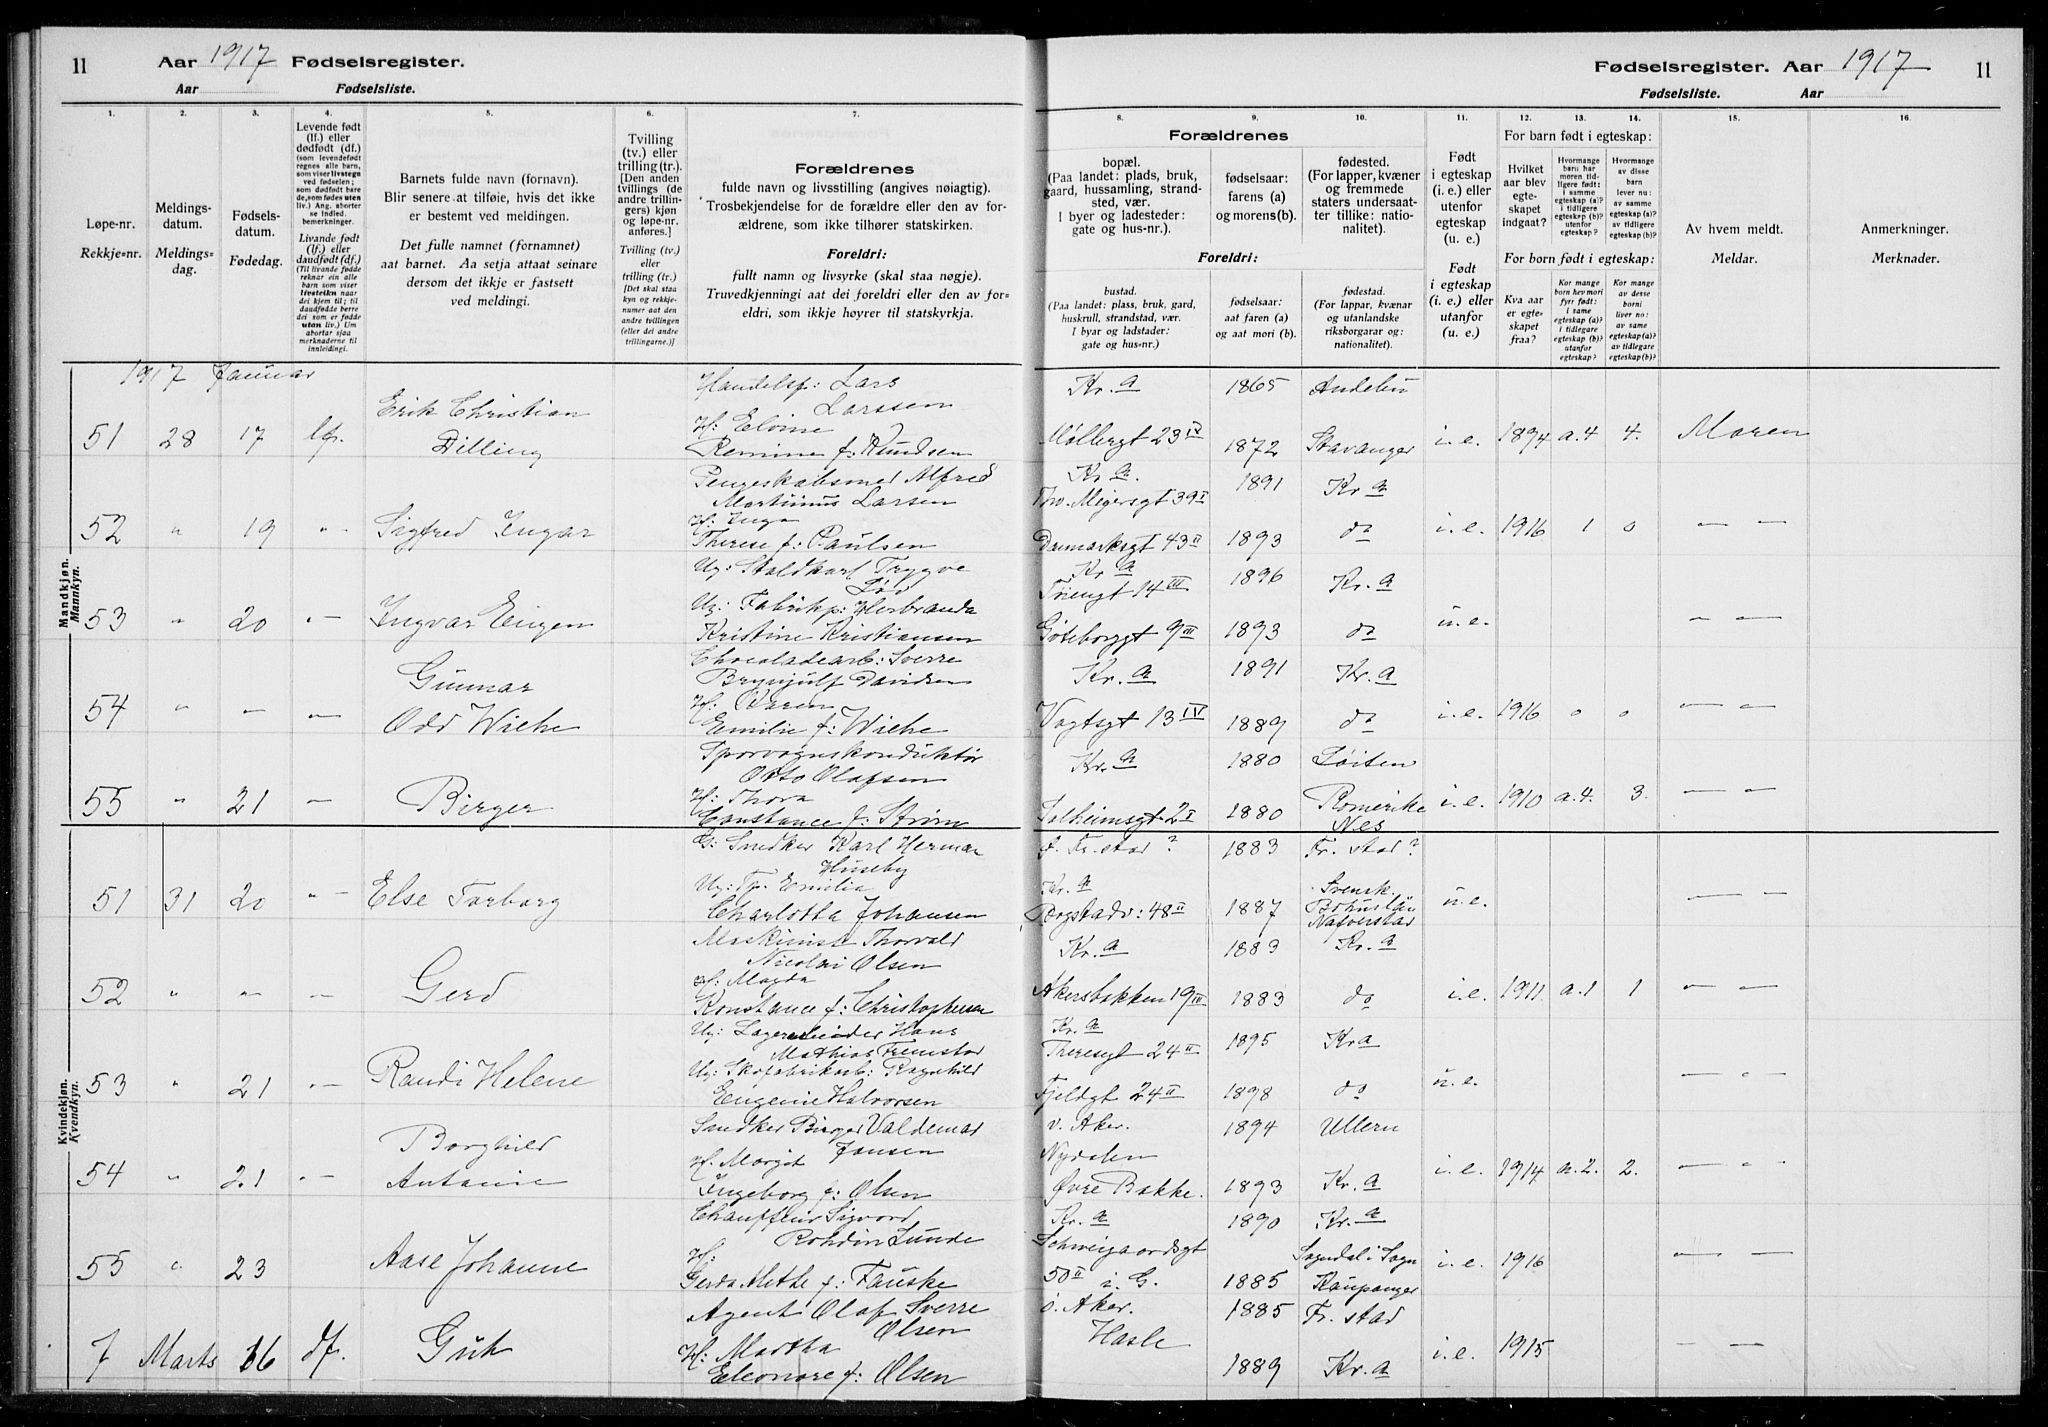 11 Aar 1917 Fødselsregister.
Aar Fødselsliste.
Fødselsregister. Aar 1917 11
Fødselsliste. Aar
1. 2. 3. 4. 5. 6. 7.
Løpe-nr.
Rekkje=nr.
Meldings-
datum.
Meldings=
dag.
Fødsels-
datum.
Fødedag.
Levende født
(lf.) eller
dødfødt (df.)
(som levendefødt
regnes alle barn,
som viser livstegn
ved fødselen;
som dødfødt bare
de, som fødes uten
liv.) Ang. aborter
se indled.
bemerkninger.
Livande født
(lf.) eller
daudfødt (df.)
(Til livande fødde
reknar ein alle
barn som viser
livsteikn naar
dei kjem til; til
daudfødde berre
dei som er fødde
utan liv.) Um
abortar sjaa
merknaderne til
innleidingi.
Barnets fulde navn (fornavn).
Blir senere at tilføie, hvis det ikke
er bestemt ved meldingen.
Det fulle namnet (fornamnet)
aat barnet. Aa setja attaat seinare
dersom det ikkje er fastsett
ved meldingi.
Tvilling
(tv.) eller
trilling (tr.).
[Den anden
tvillings (de
andre trillin-
gers) kjøn
og løpe-nr.
anføres.]
Tvilling (tv.)
eller
trilling (tr.)
[Det skal staa
kyn og rekkje-
numer aat den
andre tvillingen
(eller dei andre
trillingarne.)]
Forældrenes
fulde navn og livsstilling (angives nøiagtig).
Trosbekjendelse for de forældre eller den av for-
ældrene, som ikke tilhører statskirken.
Foreldri:
fullt namn og livsyrke (skal staa nøgje).
Truvedkjenningi aat dei foreldri eller den av for=
eldri, som ikkje høyrer til statskyrkja.
8. 9. 10. 11. 12. 13. 14. 15. 16.
Forældrenes
bopæl.
(Paa landet: plads, bruk,
gaard, hussamling, strand-
sted, vær.
I byer og ladesteder:
gate og hus-nr.).
fødselsaar:
farens (a)
og morens(b).
fødested.
(For lapper, kvæner
og fremmede
staters undersaat-
ter tillike: natio-
nalitet).
Foreldri:
bustad.
(Paa landet: plass, bruk, gard,
huskrull, strandstad, vær.
I byar og ladstader:
gate og hus-nr.)
fødselsaar:
aat faren (a)
og aat mori (b).
fødestad.
(For lappar, kvænar
og utanlandske
riksborgarar og:
nationalitet).
Født
i egteskap
(i. e.) eller
utenfor
egteskap
(u. e.)
Født
i egteskap
(i. e.) eller
utanfor
(u. e.)
For barn født i egteskap:
Hvilket
aar blev
egte-
skapet
indgaat?
Hvormange
barn har
moren tid-
ligere født:
i samme
egteskap (a)?
i tidligere
egteskap (b)?
utenfor
egteskap?
Hvormange
av disse
barn
lever nu:
av samme
egteskap (a)?
av tidligere
egteskap (b)?
For born født i egteskap:
Kva aar
er egte-
skapet
fraa?
Kor mange
born hev mori
fyrr født:
i same
egteskap (a)?
i tidlegare
egteskap (b)?
utanfor
egteskap?
Kor mange
av desse
borni
liver no:
av same
egteskap(a)?
av tidlegare
egteskap (b)?
Av hvem meldt.
Meldar.
Anmerkninger.
Merknader.
Mandkjøn.
Mannkyn.
1917 Januar
51 28 17 lf. Erik Christian
Dilling
Handelsf: Lars
Larssen
H: Elvine
Remine f: Knudsen
Kr. a 1865 Andebu
Møllergt 23 IV 1872 Stavanger i. e. 1894 a. 4 4. Moren
52 " 19 " Sigfred Ingar
Pengeskabsmed Alfred
Martinius Larsen
H: Inga
Therese f: Paulsen
Kr. a. 1891 Kr a
Thv. Meyersgt 39 I
Danmarksgt 43 II 1893 do i. e. 1916 1 0 — " —
53 " 20 " Ingvar Eugen
Ug: Staldkarl Trygve
Løv
Ug: Fabrikp: Herbranda
Kristine Kristiansen
Kr a 1896 Kr. a
Friengt 14 III
Gøteborggt 9 III 1893 do u. e. — " —
54 " — — Gunnar
Odd Wiehe
Chocoladearb: Sverre
Brynjulf Davidsen
H: Karen
Emilie f: Wiehe
Kr. a 1891 Kr. a
Vogtsgt 13 IV 1889 do i. e. 1916 0 0 — " —
55 " 21 — Birger
Sporvognskonduktør
Otto Olafsen
H: Thora
Constance f: Strøm
Kr. a 1880 Løiten
Solheimsgt 2 I 1880 Romerike
Nes i. e. 1910 a. 4. 3. — " —
Kvindekjøn.
Kvendkyn.
51 31 20 " Else Torborg
G: Snedker Karl Herman
Huseby
Ug: Tp. Emilia
Charlotta Johansen
f. Fr. stad ? 1883 Fr. stad ?
Kr. a
Rogstadv: 48 II 1887 Svensk.
Bohuslän
Nafverstad u. e. — " —
52 " — — Gerd
Maskinist Thorvald
Nicolai Olsen
H: Magda
Konstance f: Christophersen
Kr. a 1883 Kr. a
Akersbakken 19 III 1883 do i. e. 1911. a. 1 1 — " —
53 " 21 " Randi Helene
Ug: Lagerarbeider Hans
Mathias Fremstad
Ug: Skofabrikarb: Ragnhild
Eugenie Halvorsen
Kr. a 1895 Kr a
Theresgt 24 II
Fjeldgt 24 II 1898 do u. e. — " —
54 " 21 " Borghild
Antonie
Snedker Birger Valdemar
Jansen
H. Margit
Ingeborg f: Olsen
v. Aker. 1894 Ullern
Nydalen
Øvre Bakke. 1893 Kr. a i. e. 1914 a. 2. 2. — " —
55 " 23 Aase Johanne
Chauffeur Sigvard
Rohdin Lunde
H:
Gerda Methe f: Fauske
Kr. a 1890 Kr. a
Schweigaardsgt
50 II i. G. 1885 Sogndal i Sogn
Kaupanger i. e. 1916 — " —
7 Marts 16 df. Gut
Agent Olaf Sverre
Olsen
H: Martha
Eleonore f: Olsen
ø. Aker. 1885 Fr. stad
Hasle 1889 Kr. a i. e. 1915 — " —